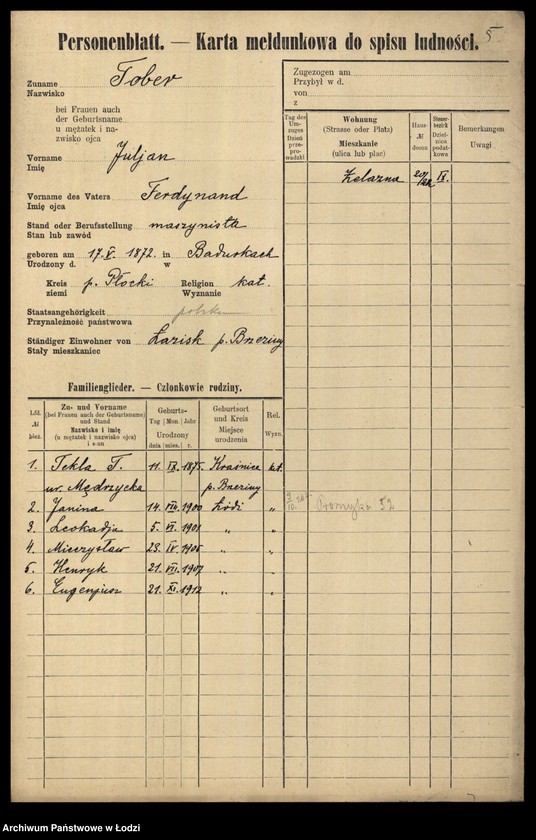 5
Personenblatt. — Karta meldunkowa do spisu ludności.
Zuname
Nazwisko
Tober
bei Frauen auch
der Geburtsname
u mężatek i na-
zwisko ojca
Vorname
Imię
Juljan
Vorname des Vaters
Imię ojca
Ferdynand
Stand oder Berufsstellung
Stan lub zawód
maszynista
geboren am 17. V. 1872. in
Urodzony d. w
Kreis p. Płocki Religion kat.
ziemi Wyznanie
Staatsangehörigkeit
Przynależność państwowa
Ständiger Einwohner von Łazisk p. Brzeziny
Stały mieszkaniec
Zugezogen am
Przybył w d.
von
z
Tag des
Um-
zuges
Dzień
prze-
pro-
wadzki
Wohnung
(Strasse oder Platz)
Mieszkanie
(ulica lub plac)
Haus-
№
domu
Steuer-
bezirk
Dziel-
nica
podat-
kowa
Bemerkungen
Uwagi
Żelazna IX.
Familienglieder. — Członkowie rodziny.
Lfd.
№
bież.
Zu- und Vorname
(bei Frauen auch der Geburtsname)
und Stand
Nazwisko i imię
(u mężatek i nazwisko ojca)
i stan
Geburts-
Tag Mon. Jahr
Urodzony
dnia mies. r.
Geburtsort
und Kreis
Miejsce
urodzenia
Rel.
Wyzn.
1. Tekla T. 11. IX. 1875. Kraśnica kat.
ur. Mędrzycka p. Brzeziny
2. Janina 14. VIII. 1900 Łódź „
3. Leokadja 5. VI. 1901 „ „
4. Mieczysław 23. IV. 1905 „ „
5. Henryk 21. VII. 1907 „ „
6. Eugenjusz 21. XI. 1912 „ „
Archiwum Państwowe w Łodzi